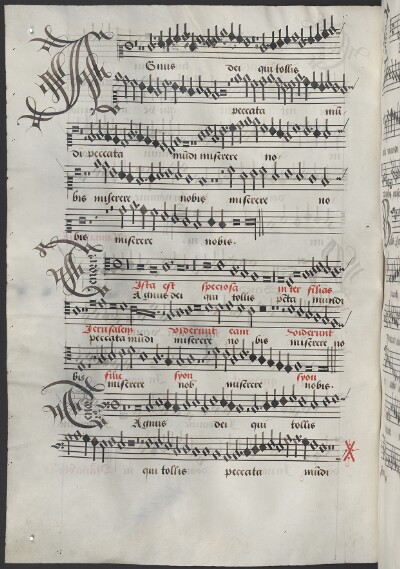 Agnus dei qui tollis
peccata mū
di peccata mūdi miserere no
bis miserere nobis miserere no
bis miserere nobis.
Tenor
Ista est speciosā inter filias
Agnus dei qui tollis pctā mundi
Jerusalem viderunt eam viderunt
peccata mūdi miserere no bis miserere no
bis filie syon syon
miserere nob miserere nobis.
Tenor
Agnus dei qui tollis
qui tollis peccata mūdi